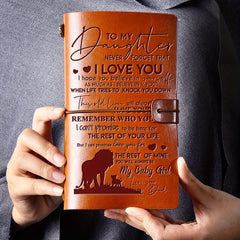 TO MY
Daughter
NEVER FORGET THAT
I LOVE YOU
I hope you believe in yourself
AS MUCH AS I BELIEVE IN YOU
WHEN LIFE TRIES TO KNOCK YOU DOWN
This old Lion will
REMEMBER WHO YOU
I can't promise to be here for
THE REST OF YOUR LIFE
But I can promise love you for
THE REST OF MINE
YOU WILL ALWAYS BE
My Baby Girl